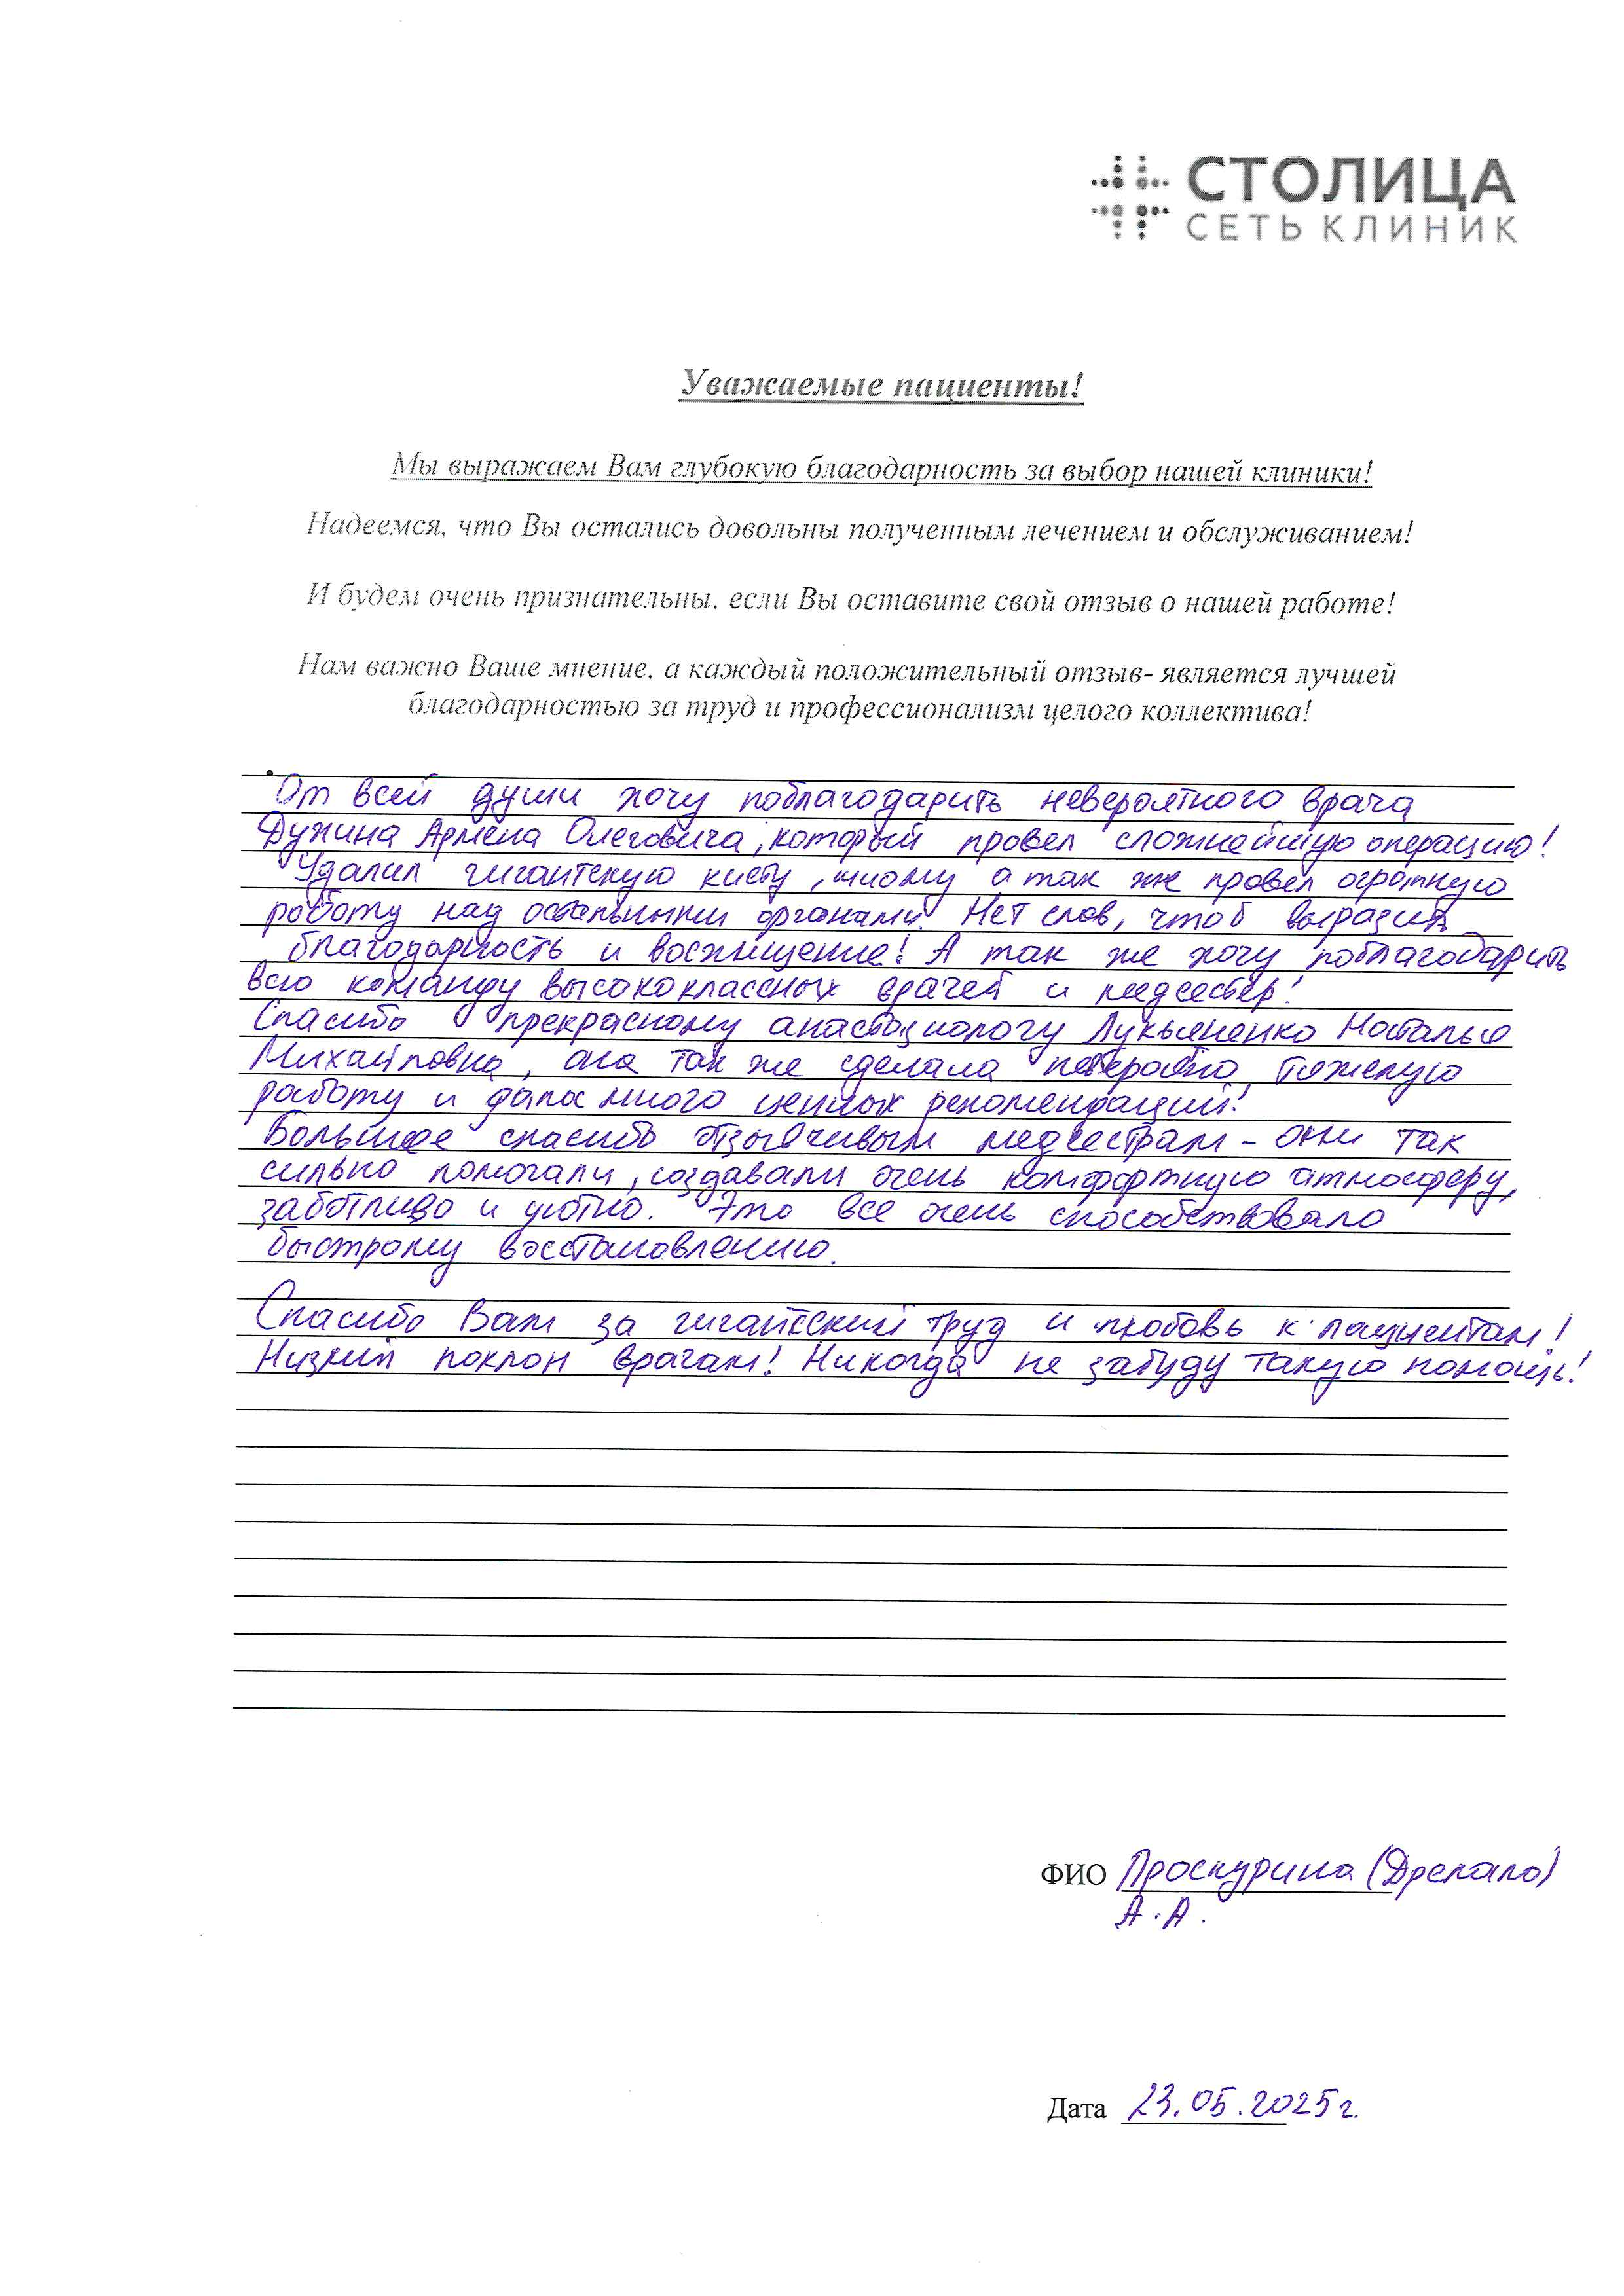 СТОЛИЦА
СЕТЬ КЛИНИК
Уважаемые пациенты!
Мы выражаем Вам глубокую благодарность за выбор нашей клиники!
Надеемся, что Вы остались довольны полученным лечением и обслуживанием!
И будем очень признательны, если Вы оставите свой отзыв о нашей работе!
Нам важно Ваше мнение, а каждый положительный отзыв- является лучшей
благодарностью за труд и профессионализм целого коллектива!
От всей души хочу поблагодарить невероятного врача
Духина Армена Олеговича, который провел сложнейшую операцию!
Удалил гигантскую кисту, миому а так же провел огромную
работу над остальными органами. Нет слов, чтоб выразить
благодарность и восхищение! А так же хочу поблагодарить
всю команду высококлассных врачей и медсестер!
Спасибо прекрасному анастазиологу Лукьяненко Наталье
Михайловна, она так же сделала тяжелую
работу и дала много ценных рекомендаций!
Большое спасибо отзывчивым медсестрам - они так
сильно помогали, создавали очень комфортную атмосферу,
заботливо и уютно. Это все очень способствовало
быстрому восстановлению.
Спасибо Вам за гигантский труд и любовь к пациентам!
Низкий поклон врачам! Никогда не забуду такую помощь!
ФИО Проскурина (Дрепало)
А.А.
Дата 23.05.2025г.